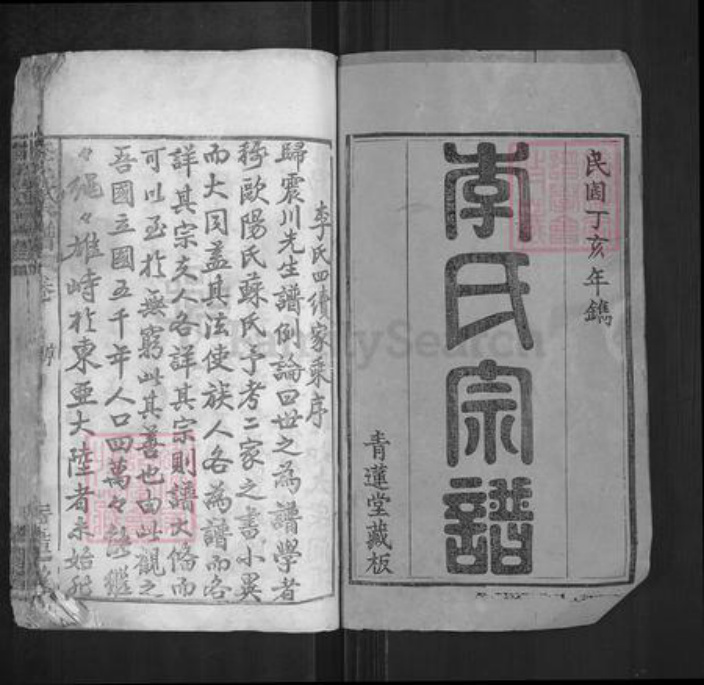 民國丁亥年鐫
李氏宗譜
青蓮堂藏板
李氏四續家乘序
歸震川先生譜例論曰世之為譜學者
稱歐陽氏蘇氏予考二家之書小異
而大同蓋其法使族人各為譜而各
詳其宗支人各詳其宗則譜大備而
可以至於無窮此其善也由此觀之
吾國立國五千年人口四萬々能繼
々繩々雄峙於東亞大陸者未始非
FamilySearch